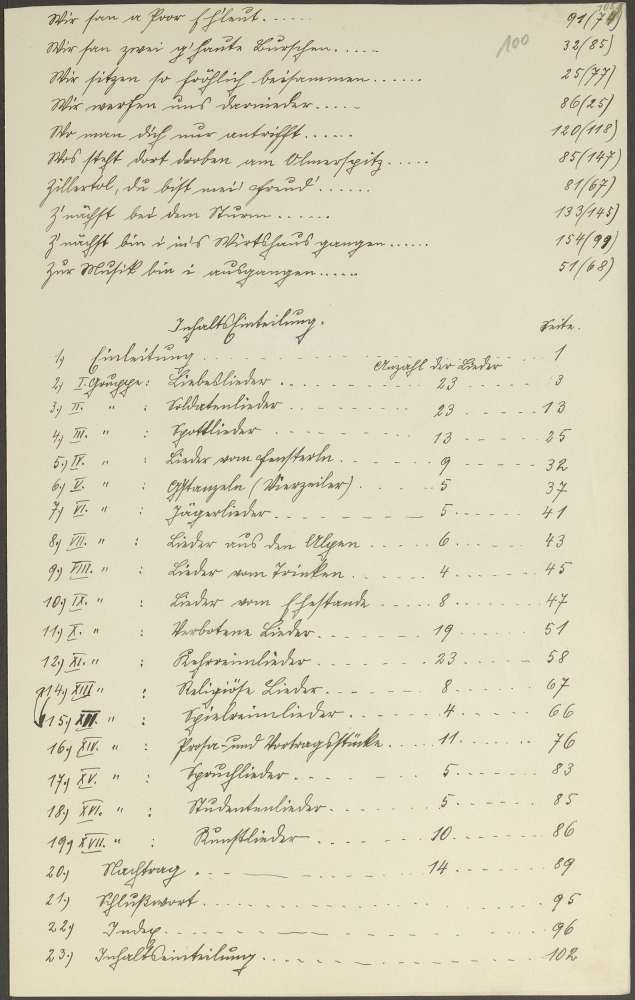 Wir san a Poor Ehleut...... 91(74)
Wir san zwei g'haute Burschen...... 32(85)
100
Wir sitzen so fröhlich beisammen...... 25(77)
Wir werfen uns darnieder..... 86(25)
Wo man dich nur antrifft...... 120(118)
Wos steht dort droben am Olmerspitz..... 85(147)
Zillertol, du bist mei' Freud'...... 81(67)
Z'nächst bei dem Sturm...... 133(145)
Z'nächst bin i in's Wirtshaus gangen...... 154(99)
Zur Musik bin i ausgangen...... 51(68)
Inhaltseinteilung. Seite.
1) Einleitung ........ 1
Anzahl der Lieder
2) I. Gruppe: Liebeslieder ...... 23 ..... 3
3) II. " : Soldatenlieder ...... 23 ..... 13
4) III. " : Spottlieder ...... 13 ..... 25
5.) IV. " : Lieder vom Fensterln. ..... 9 ..... 32
6) V. " : Gstanzeln (Vierzeiler) . 5 37
7) VI. " : Jägerlieder ...... 5 ..... 41
8) VII. " : Lieder aus den Alpen ..... 6 ..... 43
9) VIII. " : Lieder vom Trinken ...... 4 ..... 45
10) IX. " : Lieder vom Ehestande .... 8 ..... 47
11.) X. " : Verbotene Lieder ...... 19 ..... 51
12.) XI. " : Kehrreimlieder ...... 23 ..... 58
14) XIII " : Religiöse Lieder. ..... 8 ..... 67
15) XII. " : Spielreimlieder ..... 4 ..... 66
16) XIV. " : Prosa- und Vortragsstücke .... 11 ..... 76
17.) XV. " : Spruchlieder. ..... 5 ..... 83
18) XVI. " : Studentenlieder. ..... 5 ..... 85
19) XVII. " : Kunstlieder ..... 10 ..... 86
20.) Nachtrag ...... 14 ..... 89
21.) Schlußwort ........ 95
22) Index. ........ 96
23.) Inhaltseinteilung ........ 102